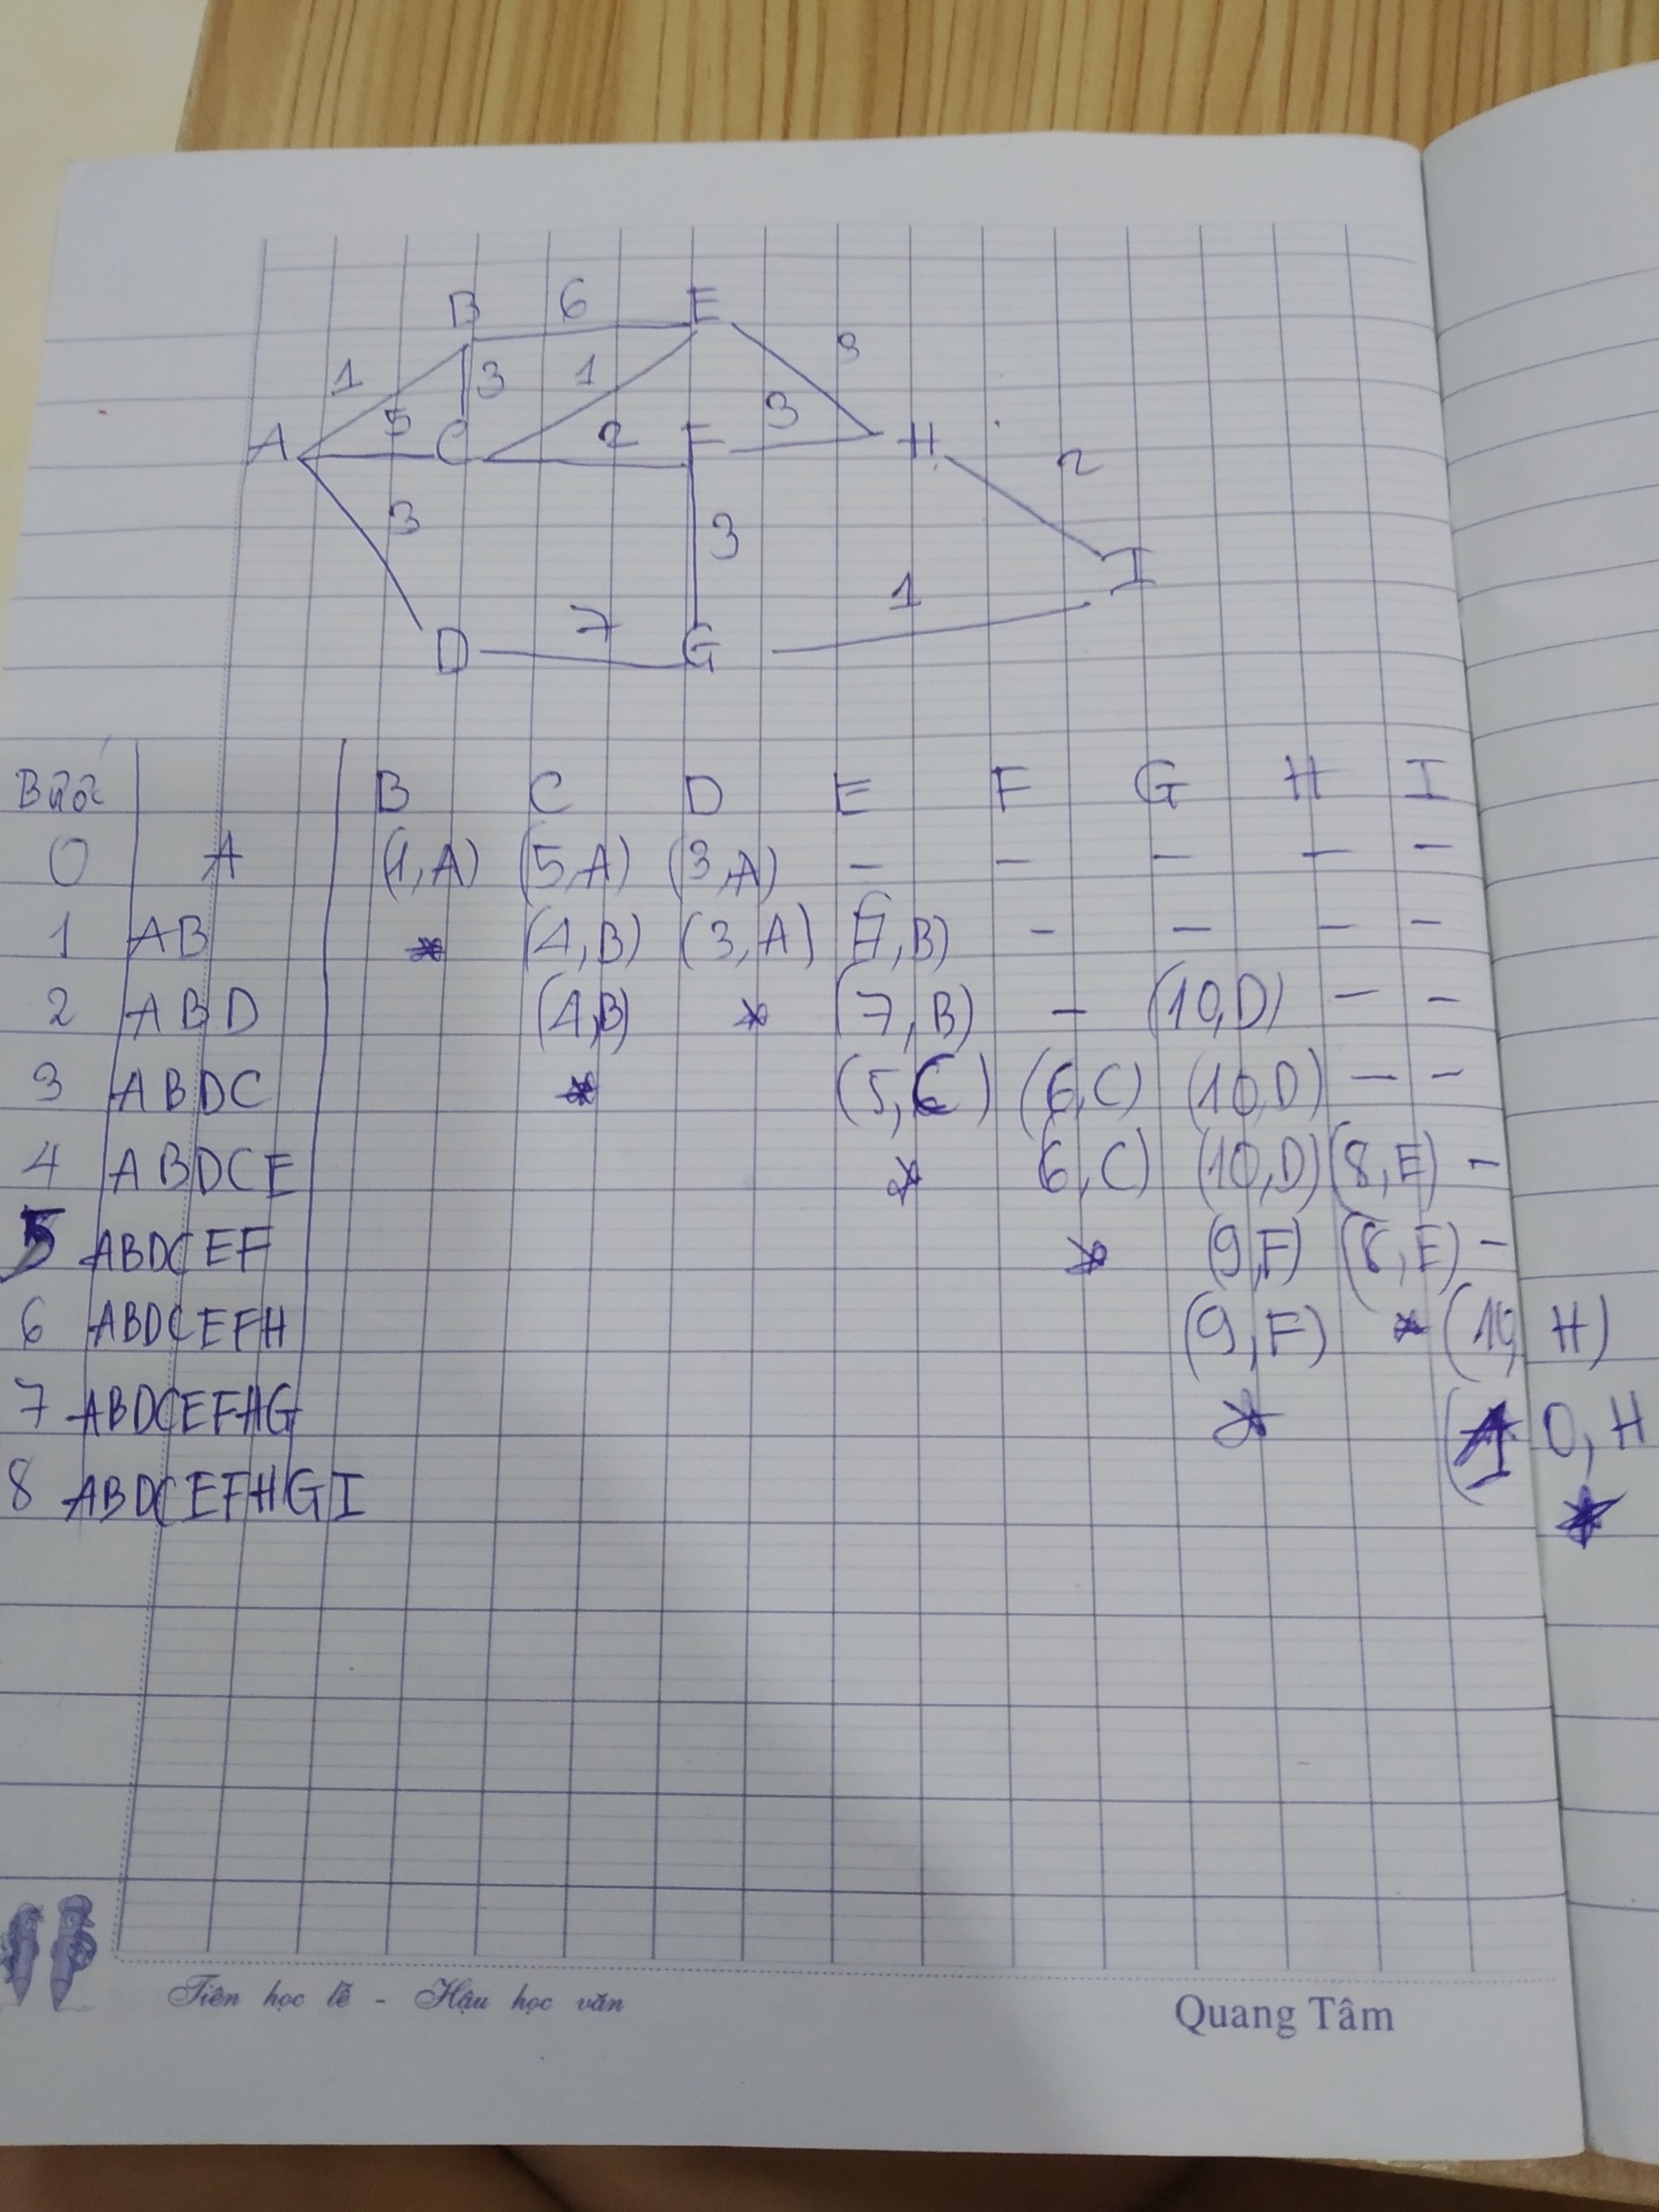 B 6 E
1 3 1 3
A 5 C 2 F 3 H
3 3 2
I
D 7 G 1
Bước B C D E F G H I
0 A (1,A) (5,A) (3,A) - - - - -
1 AB * (4,B) (3,A) (7,B) - - - -
2 ABD (4,B) * (7,B) - (10,D) - -
3 ABDC * (5,C) (6,C) (10,D) - -
4 ABDCE * 6,C) (10,D) (8,E) -
5 ABDCEF * (9,F) (8,E) -
6 ABDCEFH (9,F) * (10, H)
7 ABDCEFHG * (10, H
8 ABDCEFHGI *
Tiên học lễ - Hậu học văn
Quang Tâm